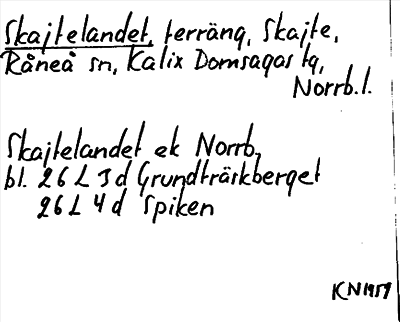 Skajtelandet, terräng, Skajte,
Råneå sn, Kalix Domsagas tg,
Norrb.l.
Skajtelandet ek Norrb.
bl. 26 L 3 d Grundträskberget
26 L 4 d Spiken
KN 1959